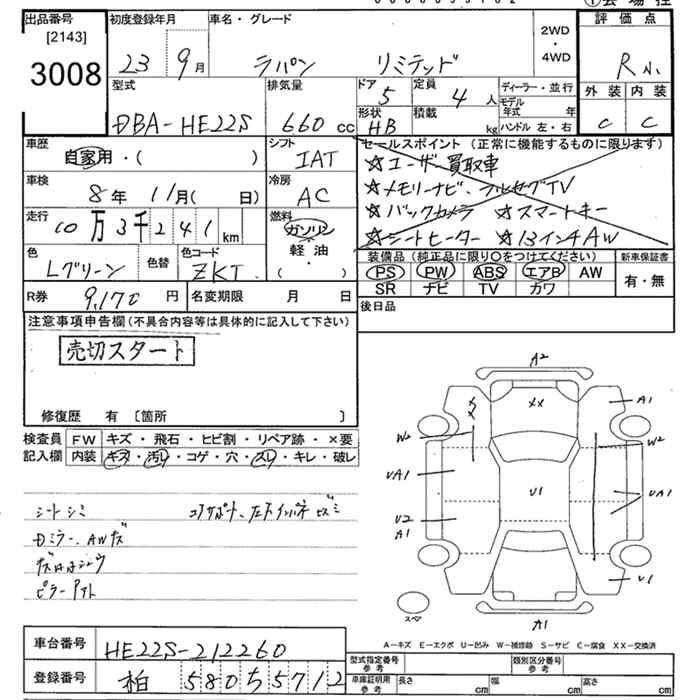 出品番号 初度登録年月 車名・グレード 2WD・4WD 評価点
[2143]
3008 23 9月 ラパン リミテッド R
型式 排気量 ドア 5 定員 4人 ディーラー・並行 外装 内装
DBA-HE22S 660cc 形状 HB 積載 kg モデル年式 年 C C
ハンドル 左・右
車歴 自家用・( ) シフト IAT セールスポイント (正常に機能するものに限ります)
☆ユーザー買取車
車検 8年 11月( 日) 冷房 AC ☆メモリーナビ、フルセグTV
走行 10万3千241km 燃料 ガソリン 軽油・( ) ☆バックカメラ ☆スマートキー
☆シートヒーター ☆13インチAW
色 Lグリーン 色替 色コード ZKT 装備品 (純正品に限り○をつけてください) 新車保証書
PS PW ABS エアB AW 有・無
SR ナビ TV カワ
R券 9,170円 名変期限 月 日 後日品
注意事項申告欄(不具合内容等は具体的に記入して下さい)
売切スタート
修復歴 有 〔箇所 〕
検査員記入欄 FW キズ・飛石・ヒビ割・リペア跡・×要
内装 キズ・汚れ・コゲ・穴・スレ・キレ・破レ
シートシミ
Dミラー、AWキズ
ピラー
A2
XX XX A1
W2 W2
UA1 U1 UA1
U2
A1
U1
スペア A1
A-キズ E-エクボ U-凹み W-補修跡 S-サビ C-腐食 XX-交換済
車台番号 HE22S-212260 型式指定番号 参考 類別区分番号 参考
登録番号 柏 580 5712 車庫証明用 参考 長さ cm 幅 cm 高さ cm